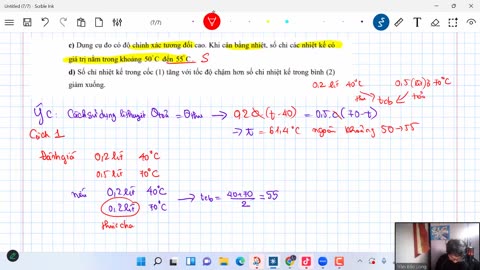 Untitled (7/7) - Scrble Ink
(7/7)
c) Dụng cụ đo có độ chính xác tương đối cao. Khi cân bằng nhiệt, số chỉ các nhiệt kế có
giá trị nằm trong khoảng 50°C đến 55°C. S
d) Số chỉ nhiệt kế trong cốc (1) tăng với tốc độ chậm hơn số chỉ nhiệt kế trong bình (2)
giảm xuống.
0,2 lít 40°C 0,5 (lít) ở 70°C
thu tcb toả
Ý c: Cách sử dụng lí thuyết Qtoả = Qthu → 0,2 (t-40) = 0,5 (70-t)
Cách 1 → t = 61,4°C ngoài khoảng 50→55
Đánh giá 0,2 lít 40°C
0,5 lít 70°C
nếu 0,2 lít 40°C
0,2 lít 70°C → tcb = 40+70/2 = 55
thúc cho